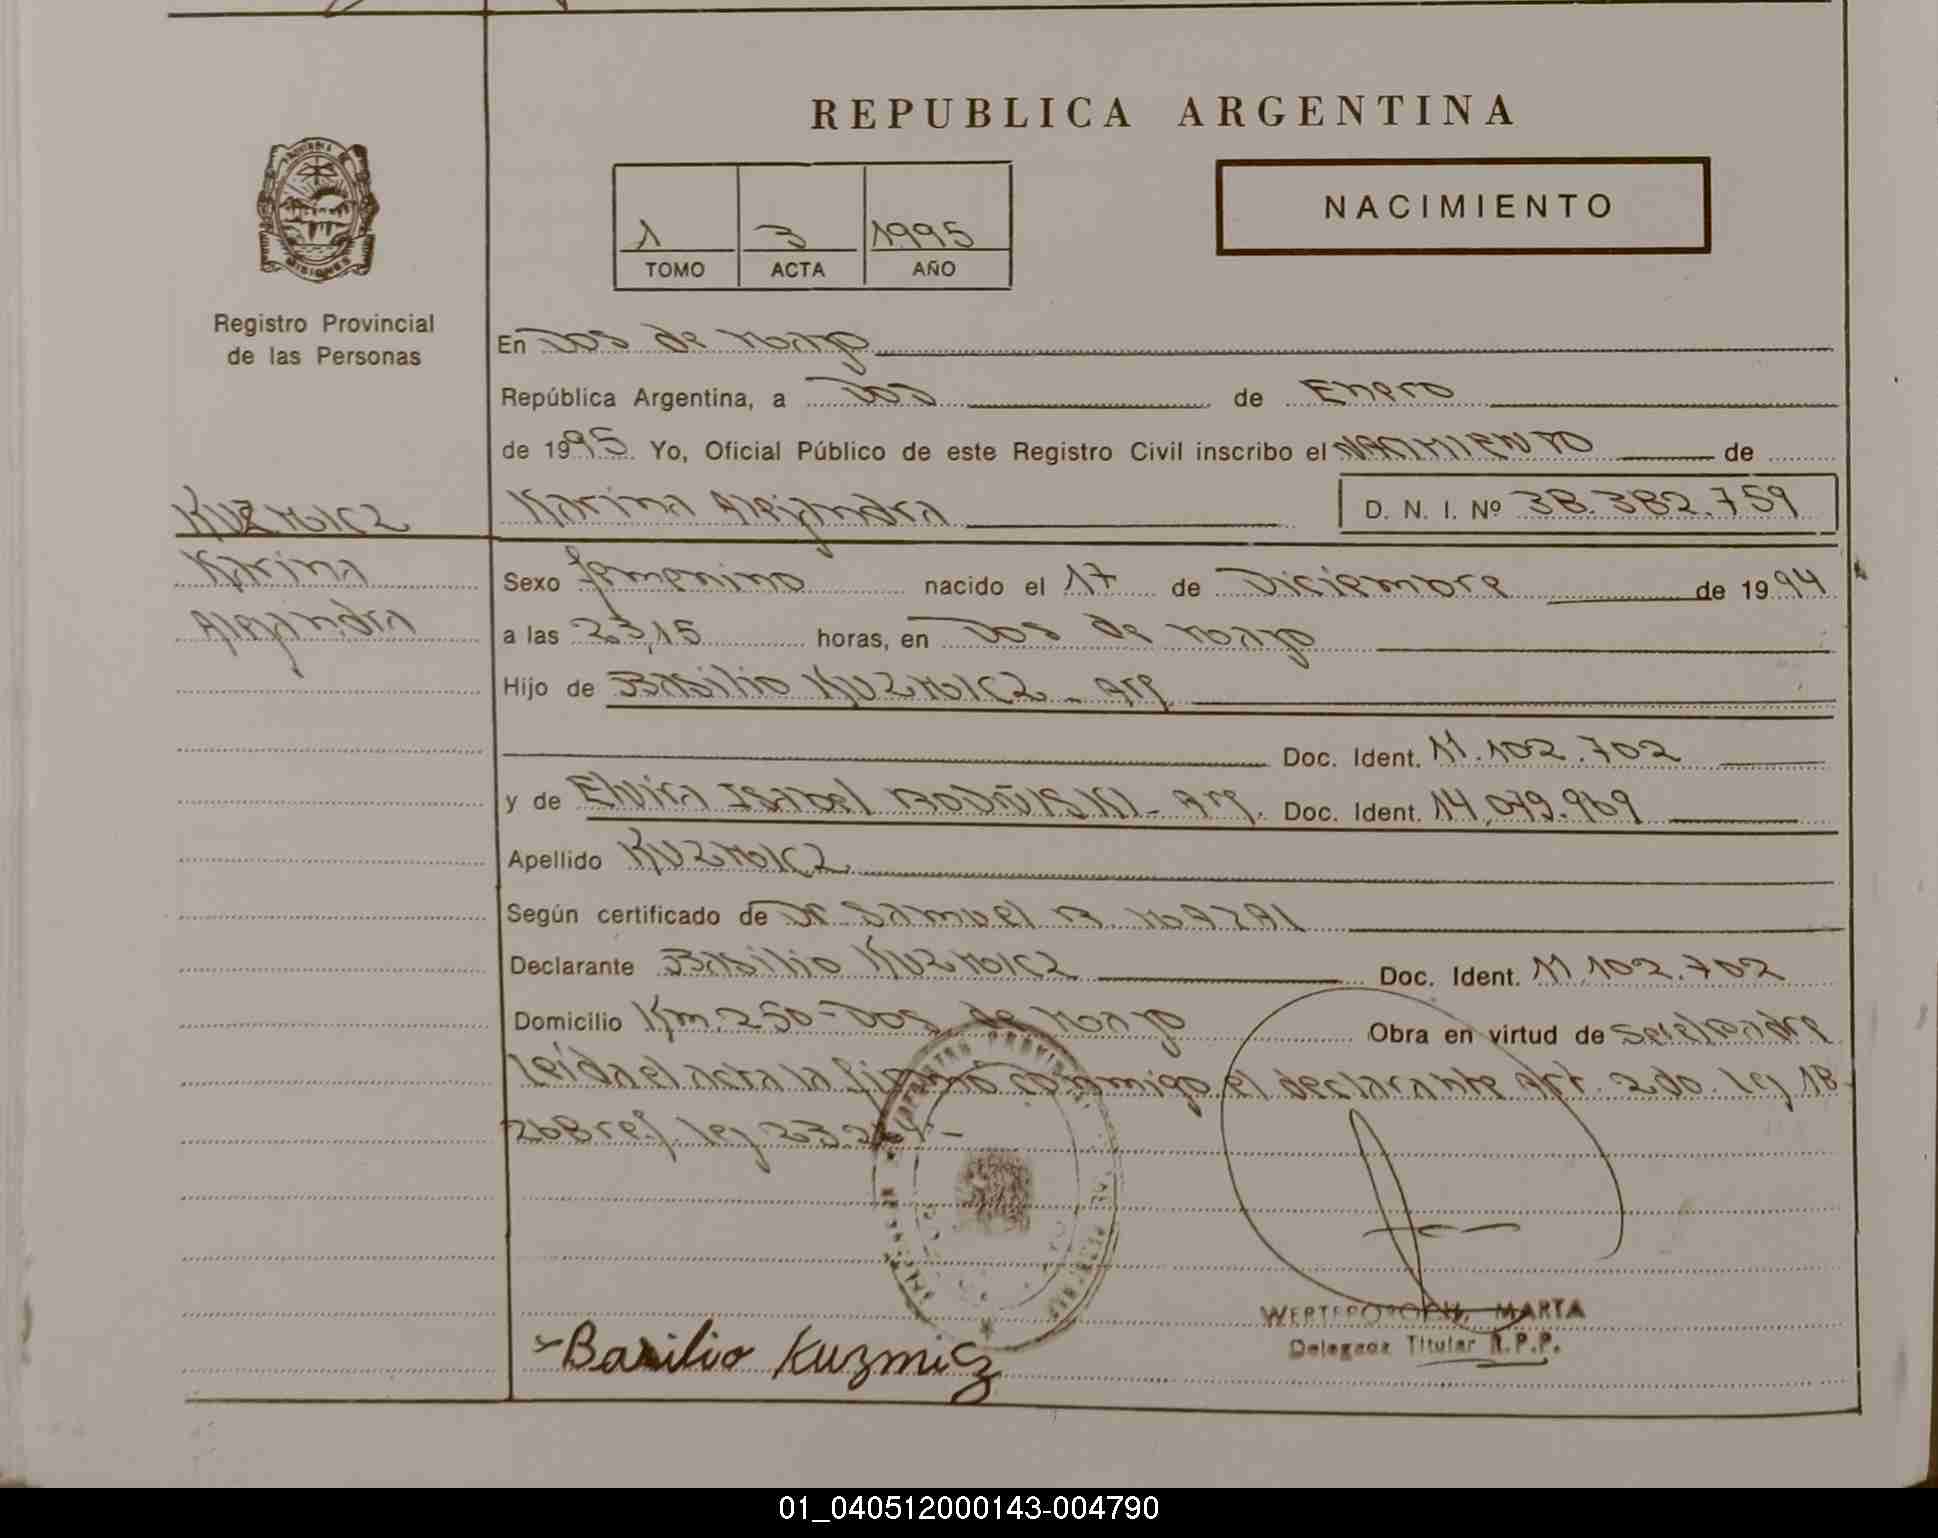 REPUBLICA ARGENTINA
NACIMIENTO
1 3 1995
TOMO ACTA AÑO
Registro Provincial
de las Personas
En Dos de Mayo
República Argentina, a Dos de Enero
de 1995. Yo, Oficial Público de este Registro Civil inscribo el NACIMIENTO de
Karina Alejandra D. N. I. Nº 38.382.759
KUZMICZ
Karina
Alejandra
Sexo femenino nacido el 17 de Diciembre de 1994
a las 23,15 horas, en Dos de Mayo
Hijo de Basilio KUZMICZ - Arg.
Doc. Ident. 11.102.702
y de Elvira Isabel - Arg. Doc. Ident. 14.079.969
Apellido KUZMICZ
Según certificado de Dr Samuel
Declarante Basilio KUZMICZ Doc. Ident. 11.102.702
Domicilio Km. 250 - Dos de Mayo Obra en virtud de ser el padre
Leída el acta la firma conmigo el declarante Art. 2do. Ley 18
268 ref. Ley
REGISTRO PROVINCIAL DE LAS PERSONAS
Basilio Kuzmicz
MARTA
Delegada Titular R.P.P.
01_040512000143-004790